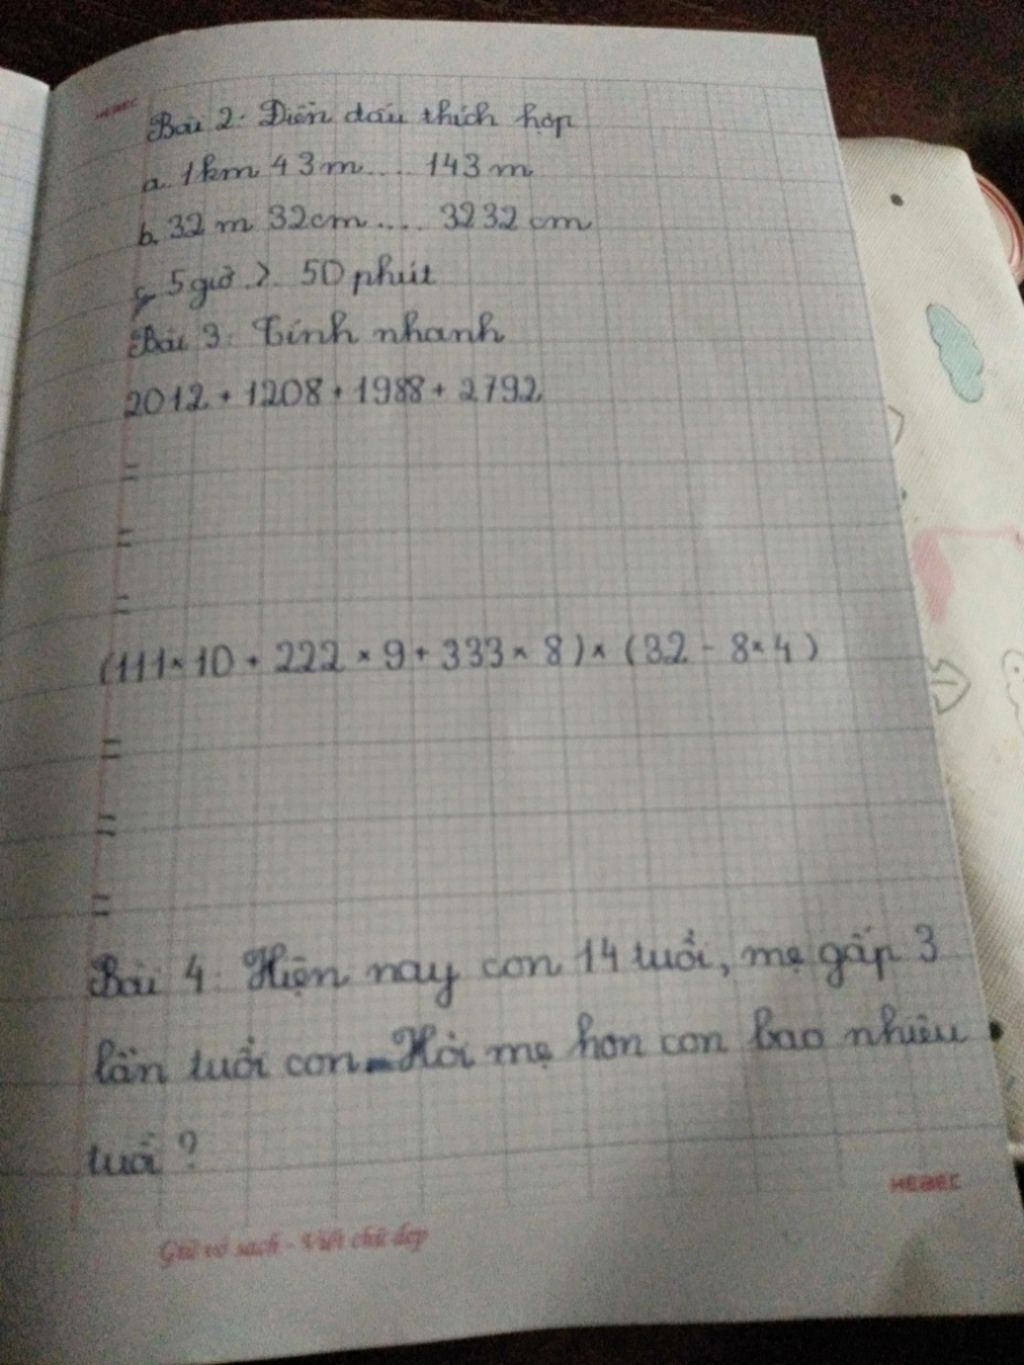 HEBEC
Bài 2: Điền dấu thích hợp
a. 1km 43m.... 143m
b. 32m 32cm.... 3232cm
c. 5 giờ .>. 50 phút
Bài 3: Tính nhanh
2012 + 1208 + 1988 + 2792
=
=
=
(111 × 10 + 222 × 9 + 333 × 8) × (32 - 8 × 4)
=
=
=
Bài 4: Hiện nay con 14 tuổi, mẹ gấp 3
lần tuổi con. Hỏi mẹ hơn con bao nhiêu
tuổi ?
HEBEC
Giữ vở sạch - Viết chữ đẹp